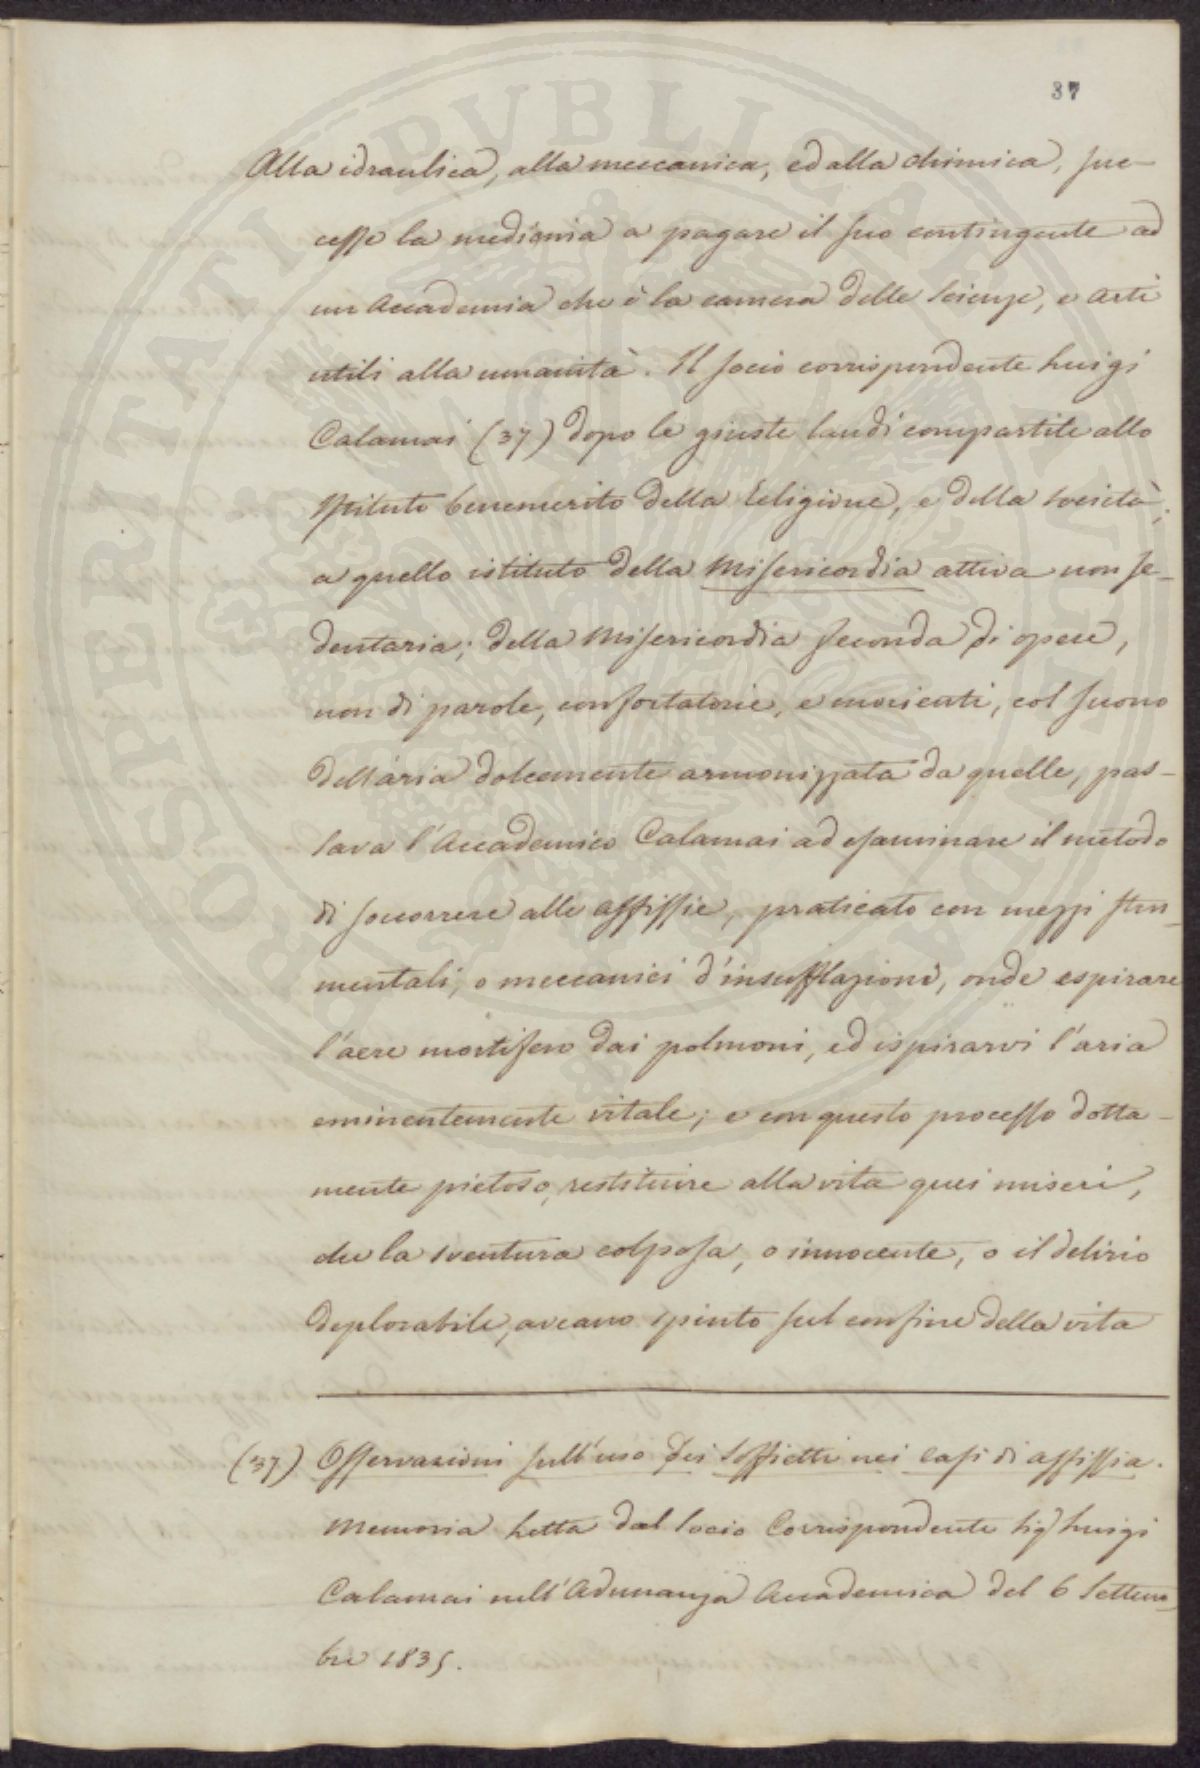 37
Alla idraulica, alla meccanica, ed alla chimica, suc-
cesse la medicina a pagare il suo contingente ad
un Accademia che è la camera delle Scienze, e Arti
utili alla umanità. Il socio corrispondente Luigi
Calamai (37) dopo le giuste laudi compartite allo
Istituto benemerito della Religione, e della Società,
a quello istituto della Misericordia attiva non se-
dentaria; della Misericordia feconda di opere,
non di parole, confortatorie, e morienti, col suono
dell'aria dolcemente armonizzata da quelle, pas-
sava l'Accademico Calamai ad esaminare il metodo
di soccorrere alle assissie, praticato con mezzi stru-
mentali, o meccanici d'insufflazioni, onde espirare
l'aere mortifero dai polmoni, ed ispirarvi l'aria
eminentemente vitale; e con questo processo dotta-
mente pietoso, restituire alla vita quei miseri,
che la sventura colposa, o innocente, o il delirio
deplorabile, aveano spinto sul confine della vita
(37) Osservazioni sull'uso dei Soffietti nei casi di assissia.
Memoria Letta dal Socio Corrispondente Sig Luigi
Calamai nell'Adunanza Accademica del 6 Settem-
bre 1835.
PROSPERITATI PUBLICAE AUGENDAE